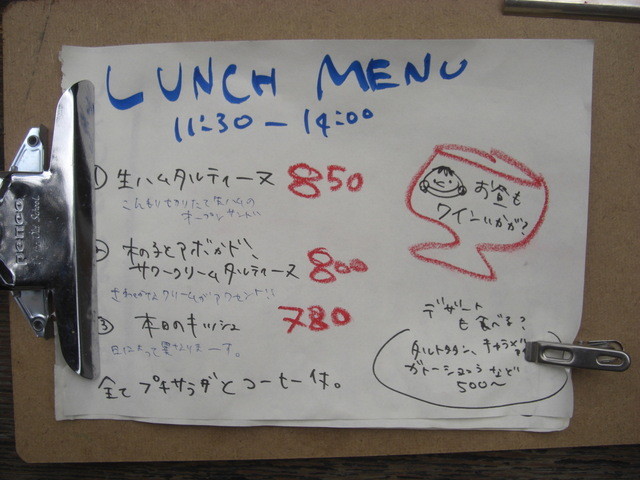 LUNCH MENU
11:30 — 14:00
① 生ハムタルティーヌ 850
こんもりもりたて生ハムの
オープンサンド!!
② きのことアボカド、
サワークリームタルティーヌ 800
さわやかなクリームがアクセント!!
③ 本日のキッシュ 780
日によって異なりまーす。
全てプチサラダとコーヒー付。
お昼も
ワインいかが?
デザート
も食べる?
タルトタタン、キャラメル
ガトーショコラなど
500〜
penco